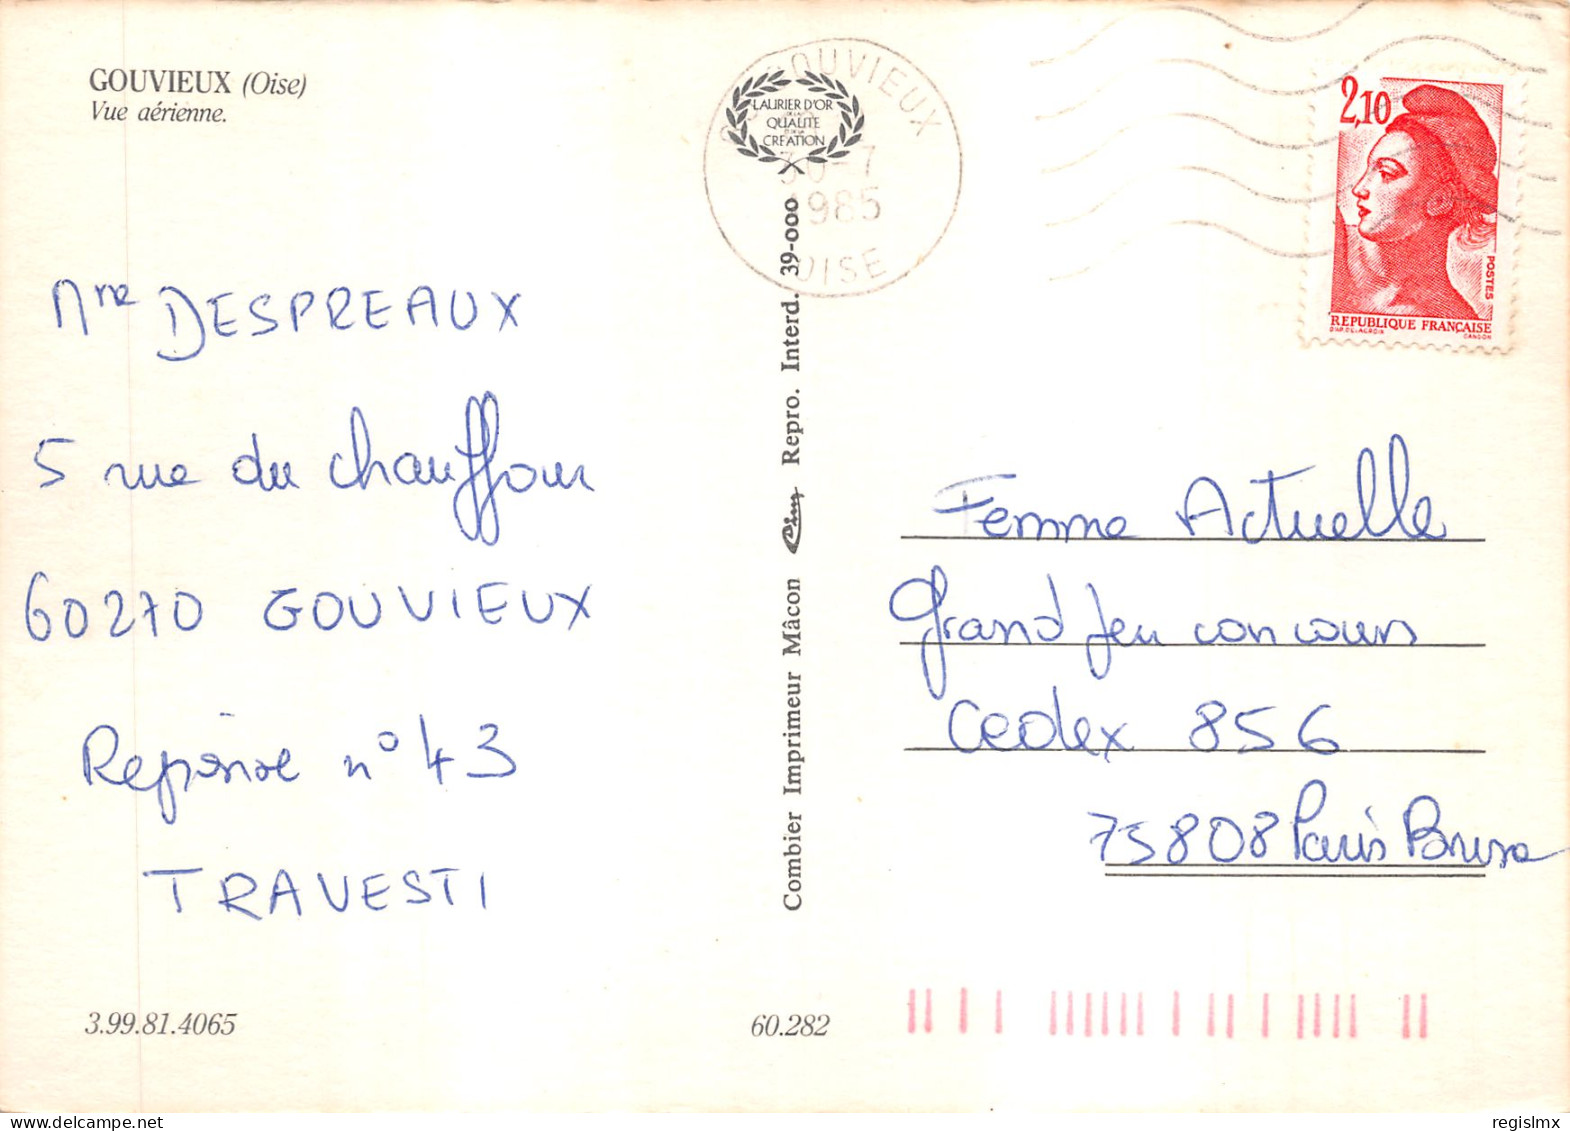 GOUVIEUX (Oise)
Vue aérienne.
Mme DESPREAUX
5 rue du chauffour
60270 GOUVIEUX
Réponse n° 43
TRAVESTI
3.99.81.4065
60.282
Combier Imprimeur Mâcon Cim Repro. Interd. 39-000
LAURIER D'OR
DE LA
QUALITE
ET DE LA
CREATION
GOUVIEUX
30-7
1985
OISE
2,10
POSTES
REPUBLIQUE FRANÇAISE
D'AP. DELACROIX
GANDON
Femme Actuelle
Grand Jeu concours
Cedex 856
75808 Paris Brune
delcampe.net
regislmx